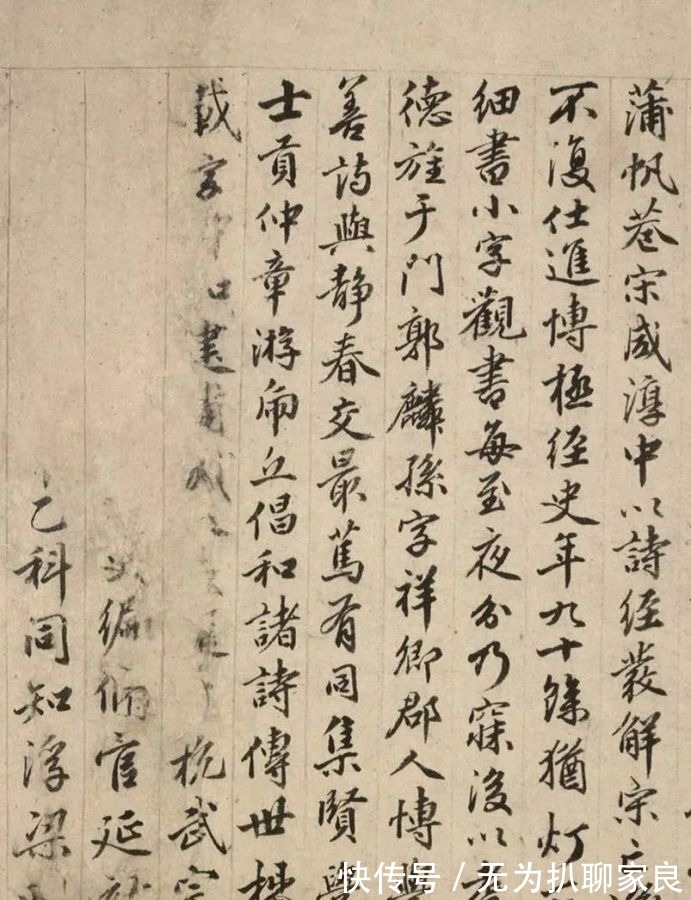 蒲帆巷宋咸淳中以詩经發解宋亡
不復仕進博極经史年九十餘猶灯
细書小字觀書每至夜分乃寐後以
德旌于門郭麟孫字祥卿郡人博學
善詩與静春交最篤有同集賢學
士貢仲章游虎丘倡和諸詩傳世楊
載字仲弘
杭武宗
编脩官延祐
乙科同知浮梁
快传号/无为扒聊家良